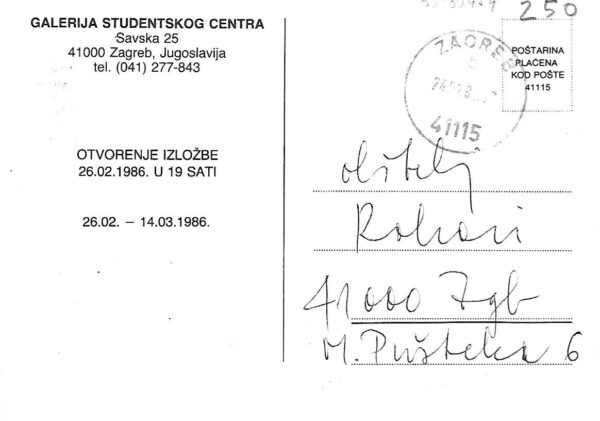 GALERIJA STUDENTSKOG CENTRA
Savska 25
41000 Zagreb, Jugoslavija
tel. (041) 277-843
250
ZAGREB
41115
POŠTARINA
PLAĆENA
KOD POŠTE
41115
OTVORENJE IZLOŽBE
26.02.1986. U 19 SATI
26.02. – 14.03.1986.
41000 Zgb
M. Pušteka 6